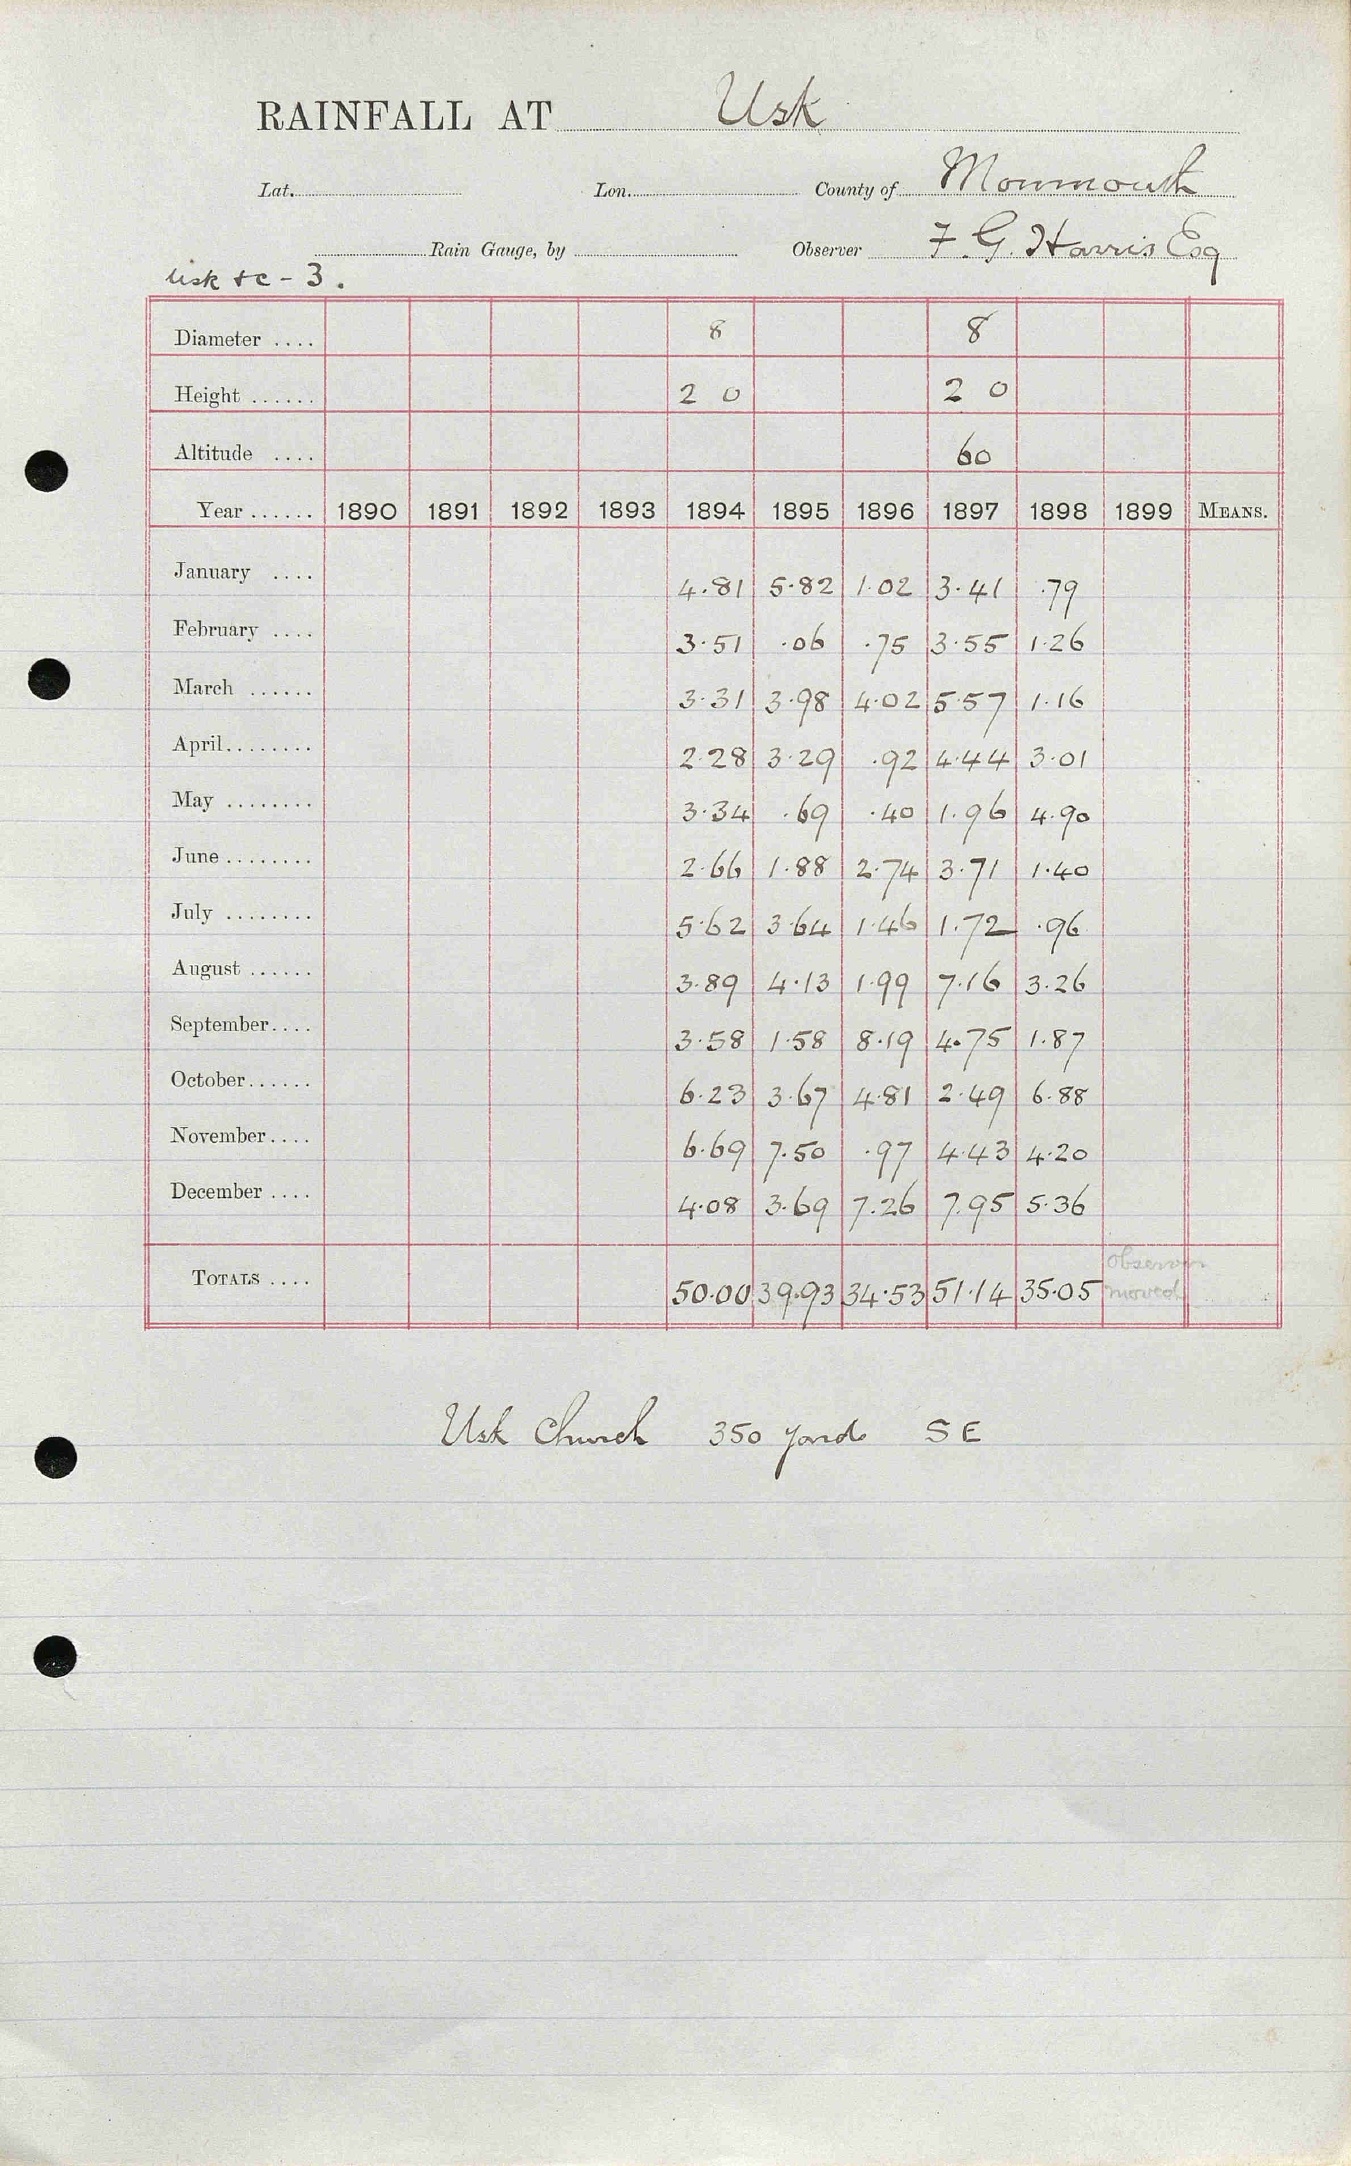 RAINFALL AT Usk
Lat. Lon. County of Monmouth
Rain Gauge, by Observer F. G. Harris Esq
Usk +c - 3.
Diameter .... 8 8
Height ...... 2 0 2 0
Altitude .... 60
Year ...... 1890 1891 1892 1893 1894 1895 1896 1897 1898 1899 MEANS.
January .... 4.81 5.82 1.02 3.41 .79
February .... 3.51 .06 .75 3.55 1.26
March ...... 3.31 3.98 4.02 5.57 1.16
April........ 2.28 3.29 .92 4.44 3.01
May ........ 3.34 .69 .40 1.96 4.90
June ........ 2.66 1.88 2.74 3.71 1.40
July ........ 5.62 3.64 1.46 1.72 .96
August ...... 3.89 4.13 1.99 7.16 3.26
September.... 3.58 1.58 8.19 4.75 1.87
October...... 6.23 3.67 4.81 2.49 6.88
November.... 6.69 7.50 .97 4.43 4.20
December .... 4.08 3.69 7.26 7.95 5.36
TOTALS .... 50.00 39.93 34.53 51.14 35.05 observer moved
Usk Church 350 yards SE